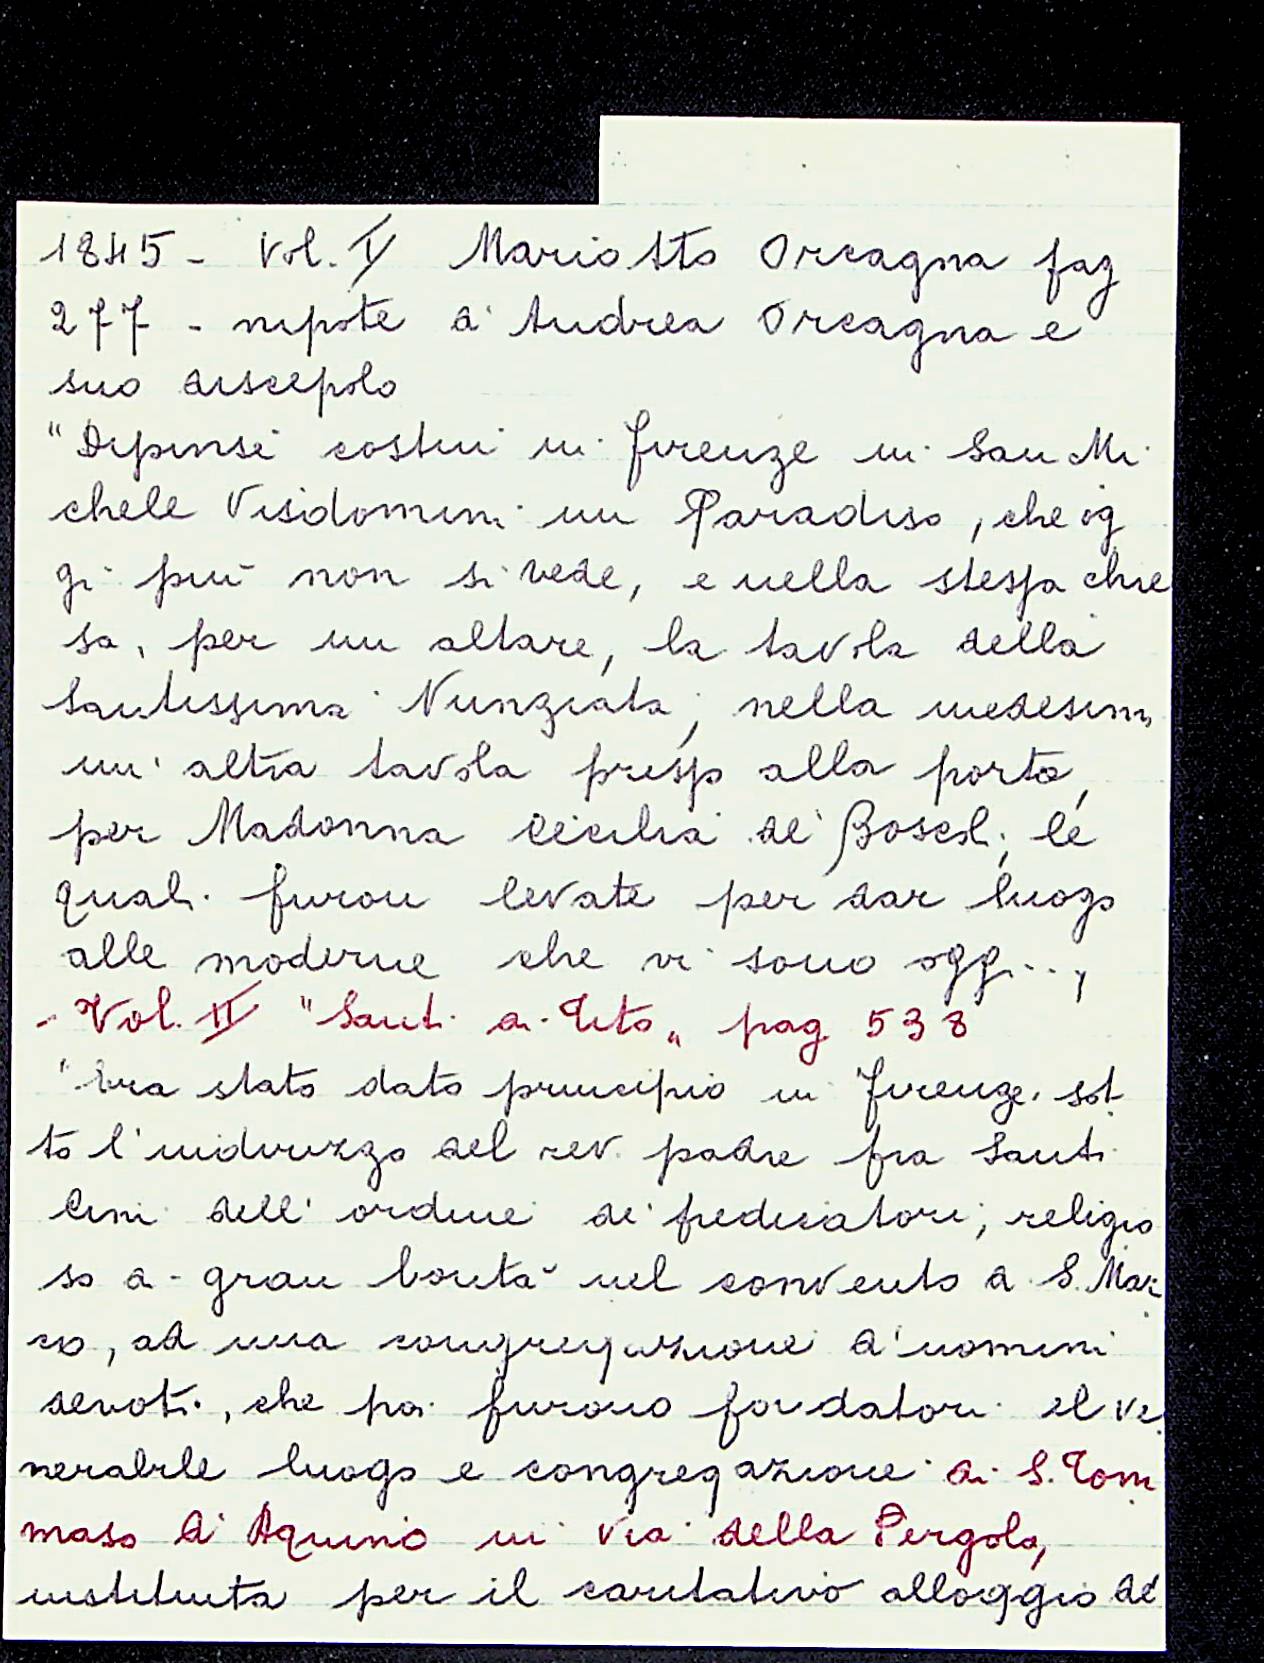 1845 - Vol. I Mariotto Orcagna fag
277 - nipote d'Andrea Orcagna e
suo discepolo
"Dipinse costui in Firenze in San Mi
chele Visdomini un Paradiso, che og
gi più non si vede, e nella stessa chie
sa, per un altare, la tavola della
Santissima Nunziata; nella medesima
un'altra tavola presso alla porta,
per Madonna Cecilia de' Boscoli; le
quali furon levate per dar luogo
alle moderne che vi sono oggi..,
- Vol. II "Santi di Tito" pag 538
"Era stato dato principio in Firenze. sot
to l'indirizzo del rev. padre fra Santi
Cini dell'ordine de' predicatori, religio
so di gran bontà nel convento di S. Mar
co, ad una congregazione d'uomini
devoti, che poi furono fondatori del ve
nerabile luogo e congregazione di S. Tom
maso d'Aquino in Via della Pergola,
instituita per il caritativo alloggio de'